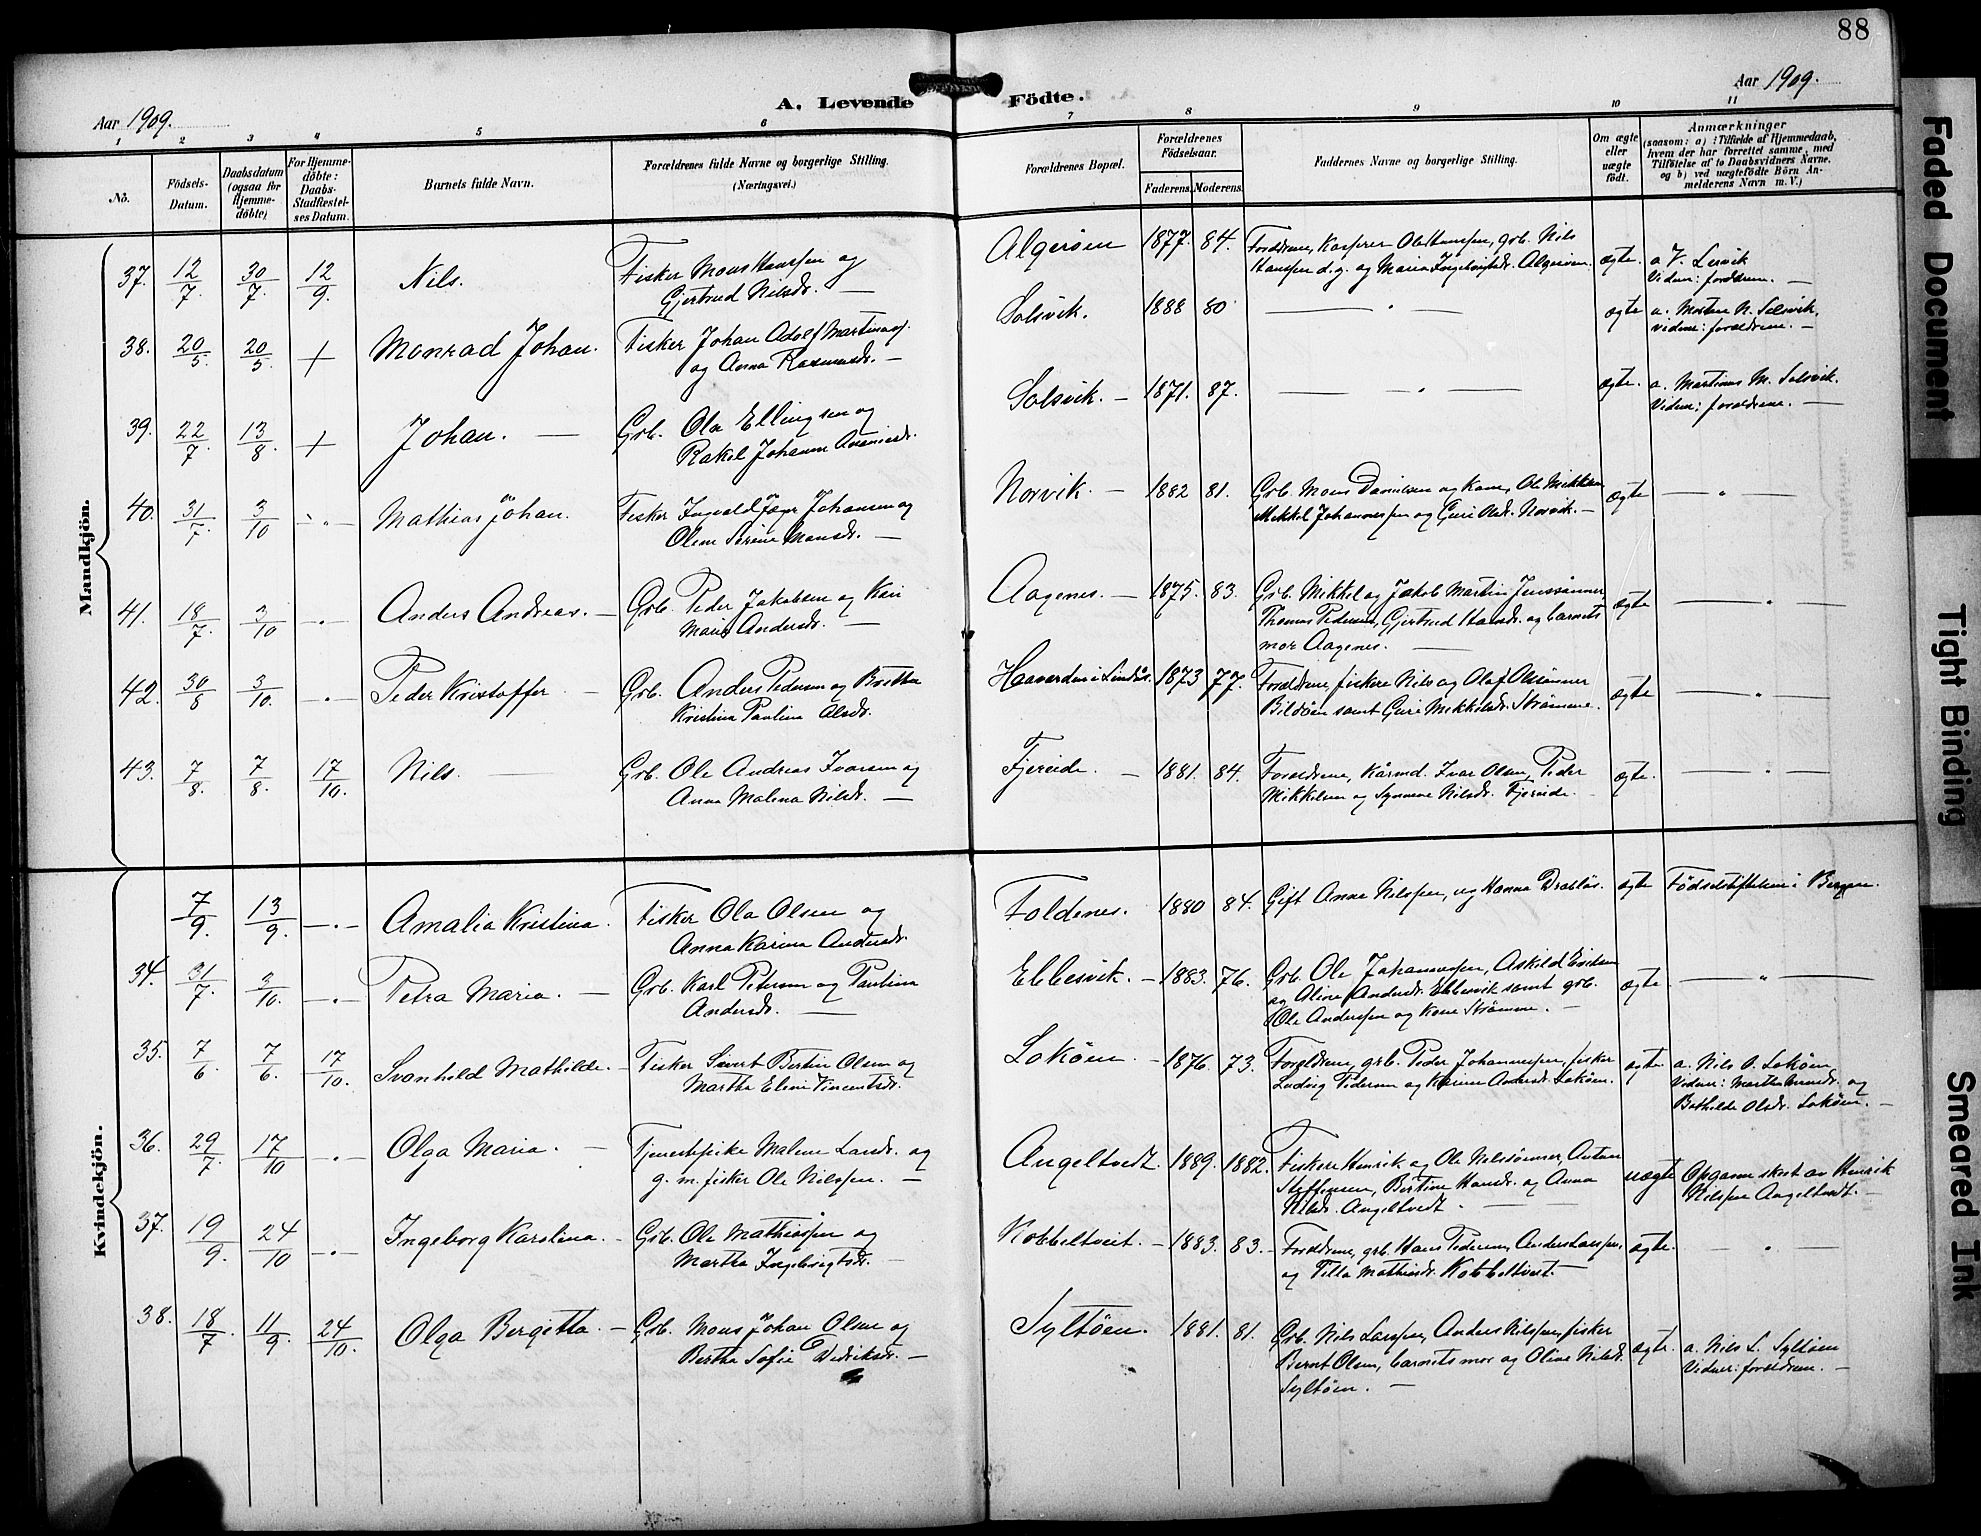 88
Aar 1909.
A. Levende Födte.
Aar 1909.
1 2 3 4 5 6 7 8 9 10 11
No.
Födsels-Datum.
Daabsdatum (ogsaa for Hjemme-döbte)
For Hjemme-döbte: Daabs-Stadfæstel-ses Datum.
Barnets fulde Navn.
Forældrenes fulde Navne og borgerlige Stilling.
(Næringsvei.)
Forældrenes Bopæl.
Forældrenes Födselsaar.
Faderens. Moderens.
Faddernes Navne og borgerlige Stilling.
Om ægte eller uægte født.
Anmærkninger
(saasom: a) i Tilfælde af Hjemmedaab, hvem der har forrettet samme, med Tilföielse af to Daabsvidners Navne, og b) ved uægtefödte Börn An-melderens Navn m. V.)
Mandkjön.
37. 12/7. 30/7. 12/9. Nils. Fisker Mons Hanssen og
Gjertrud Nilsdr. —
Algeröen 1877. 84. Forældrene, Kasperer Ole Hanssen, grb. Nils
Hanssen d. y. og Maria Ingebrigtsdr. Algeröen.
ægte. a. V. Lervik
Vidner: forældrene. —
38. 20/5. 20/5. + Monrad Johan. Fisker Johan Adolf Martinussen
og Anna Rasmusdr. —
Solsvik. 1888 80 — " — ægte a. Morten N. Solsvik,
vidner: forældrene. —
39. 22/7. 13/8. + Johan. — Grb. Ole Ellingsen og
Rakel Johanne Ananiasdr.
Solsvik. — 1871. 87. — " — ægte. a. Martinus M. Solsvik.
Vidner: forældrene. —
40. 31/7 3/10 - " - Mathias Johan. Fisker Ingvald Jæger Johansen og
Oline Sörine Monsdr. —
Norvik. — 1882 81. Grb. Mons Danielsen og Kone, Ole Mikkelsen
Mikkel Johannessen og Guri Olsdr. Norvik. —
ægte — " —
41. 18/7. 3/10 - " - Anders Andreas. — Grb. Peder Jakobsen og Kari
Maria Andersdr. —
Aagenes. — 1875. 83. Grb. Mikkel og Jakob Martin Jenssönner,
Thomas Pedersen, Gjertrud Hansdr. og barnets
mor Aagenes. —
ægte — " —
42. 30/8 3/10. - " - Peder Kristoffer — Grb. Anders Pedersen og Britha
Kristina Paulina Olsdr.
Haverden i Lindås. 1873 77. Forældrene, fiskere Nils og Olaf Olssönner
Bildöen samt Guri Mikkelsdr. Strömme.
ægte — " —
43. 7/8. 7/8. 17/10. Nils. — Grb. Ole Andreas Ivarsen og
Anna Malena Nilsdr. —
Fjereide. — 1881. 84. Forældrene, kårmd. Ivar Olsen, Peder
Mikkelsen og Synneve Nilsdr. Fjereide.
ægte. — " —
Kvindekjön.
7/9. 13/9. - " - Amalia Kristina. Fisker Ole Olsen og
Anna Karina Andersdr.
Foldenes. 1880 84. Gift Anna Nilssen, ug Hanna Drabløs. ægte Födselsstiftelsen i Bergen.
34. 31/7. 3/10. - " - Petra Maria. — Grb. Karl Petersen og Paulina
Andersdr. —
Ebbesvik. — 1883. 76. Grb. Ole Johannessen, Askild Eriksen
og Aline Andersdr. Ebbesvik samt grb.
Ole Anderssen og Kone Strömme. —
ægte. — " —
35. 7/6. 7/6. 17/10. Svanhold Mathilde. — Fisker Sivert Bertin Olsen og
Martha Elina Vincentsdr.
Loköen. — 1876. 73. Forældrene, grb. Peder Johannessen, fisker
Ludvig Pedersen og Karina Andersdr. Loköen.
ægte a. Nils O. Loköen,
Vidner: Martha og
Bothilde Olsdr. Loköen. —
36. 29/7. 17/10 - " - Olga Maria. — Tjenestepike Malene Larsdr. og
g. m. fisker Ole Nilssen. —
Angeltvedt. 1889. 1882. Fiskere Henrik og Ole Nilssönner, Anton
Steffensen, Bertine Hansdr. og Anna
Nilsdr. Angeltvedt. —
uægte Opgaven skret av Henrik
Nilssen Angeltvedt. —
37. 19/9. 24/10 - " - Ingeborg Karolina. — Grb. Ole Mathiassen og
Martha Ingebrigtsdr. —
Kobbeltveit. — 1883. 83. — Forældrene, grb. Hans Pedersen, Anders Larssen,
og Tilla Mathiasdr. Kobbeltveit.
ægte. — " —
38. 18/7. 11/9. 24/10. Olga Bergitta. — Grb. Mons Johan Olsen og
Bertha Sofie Dedriksdr. —
Syltöen. — 1881. 81. Grb. Nils Larssen, Anders Nilssen, fisker
Bernt Olsen, barnets mor og Oline Nilsdr.
Syltöen. —
ægte. a. Nils L. Syltöen
Vidner: forældrene. —
Faded Document
Tight Binding
Smeared Ink